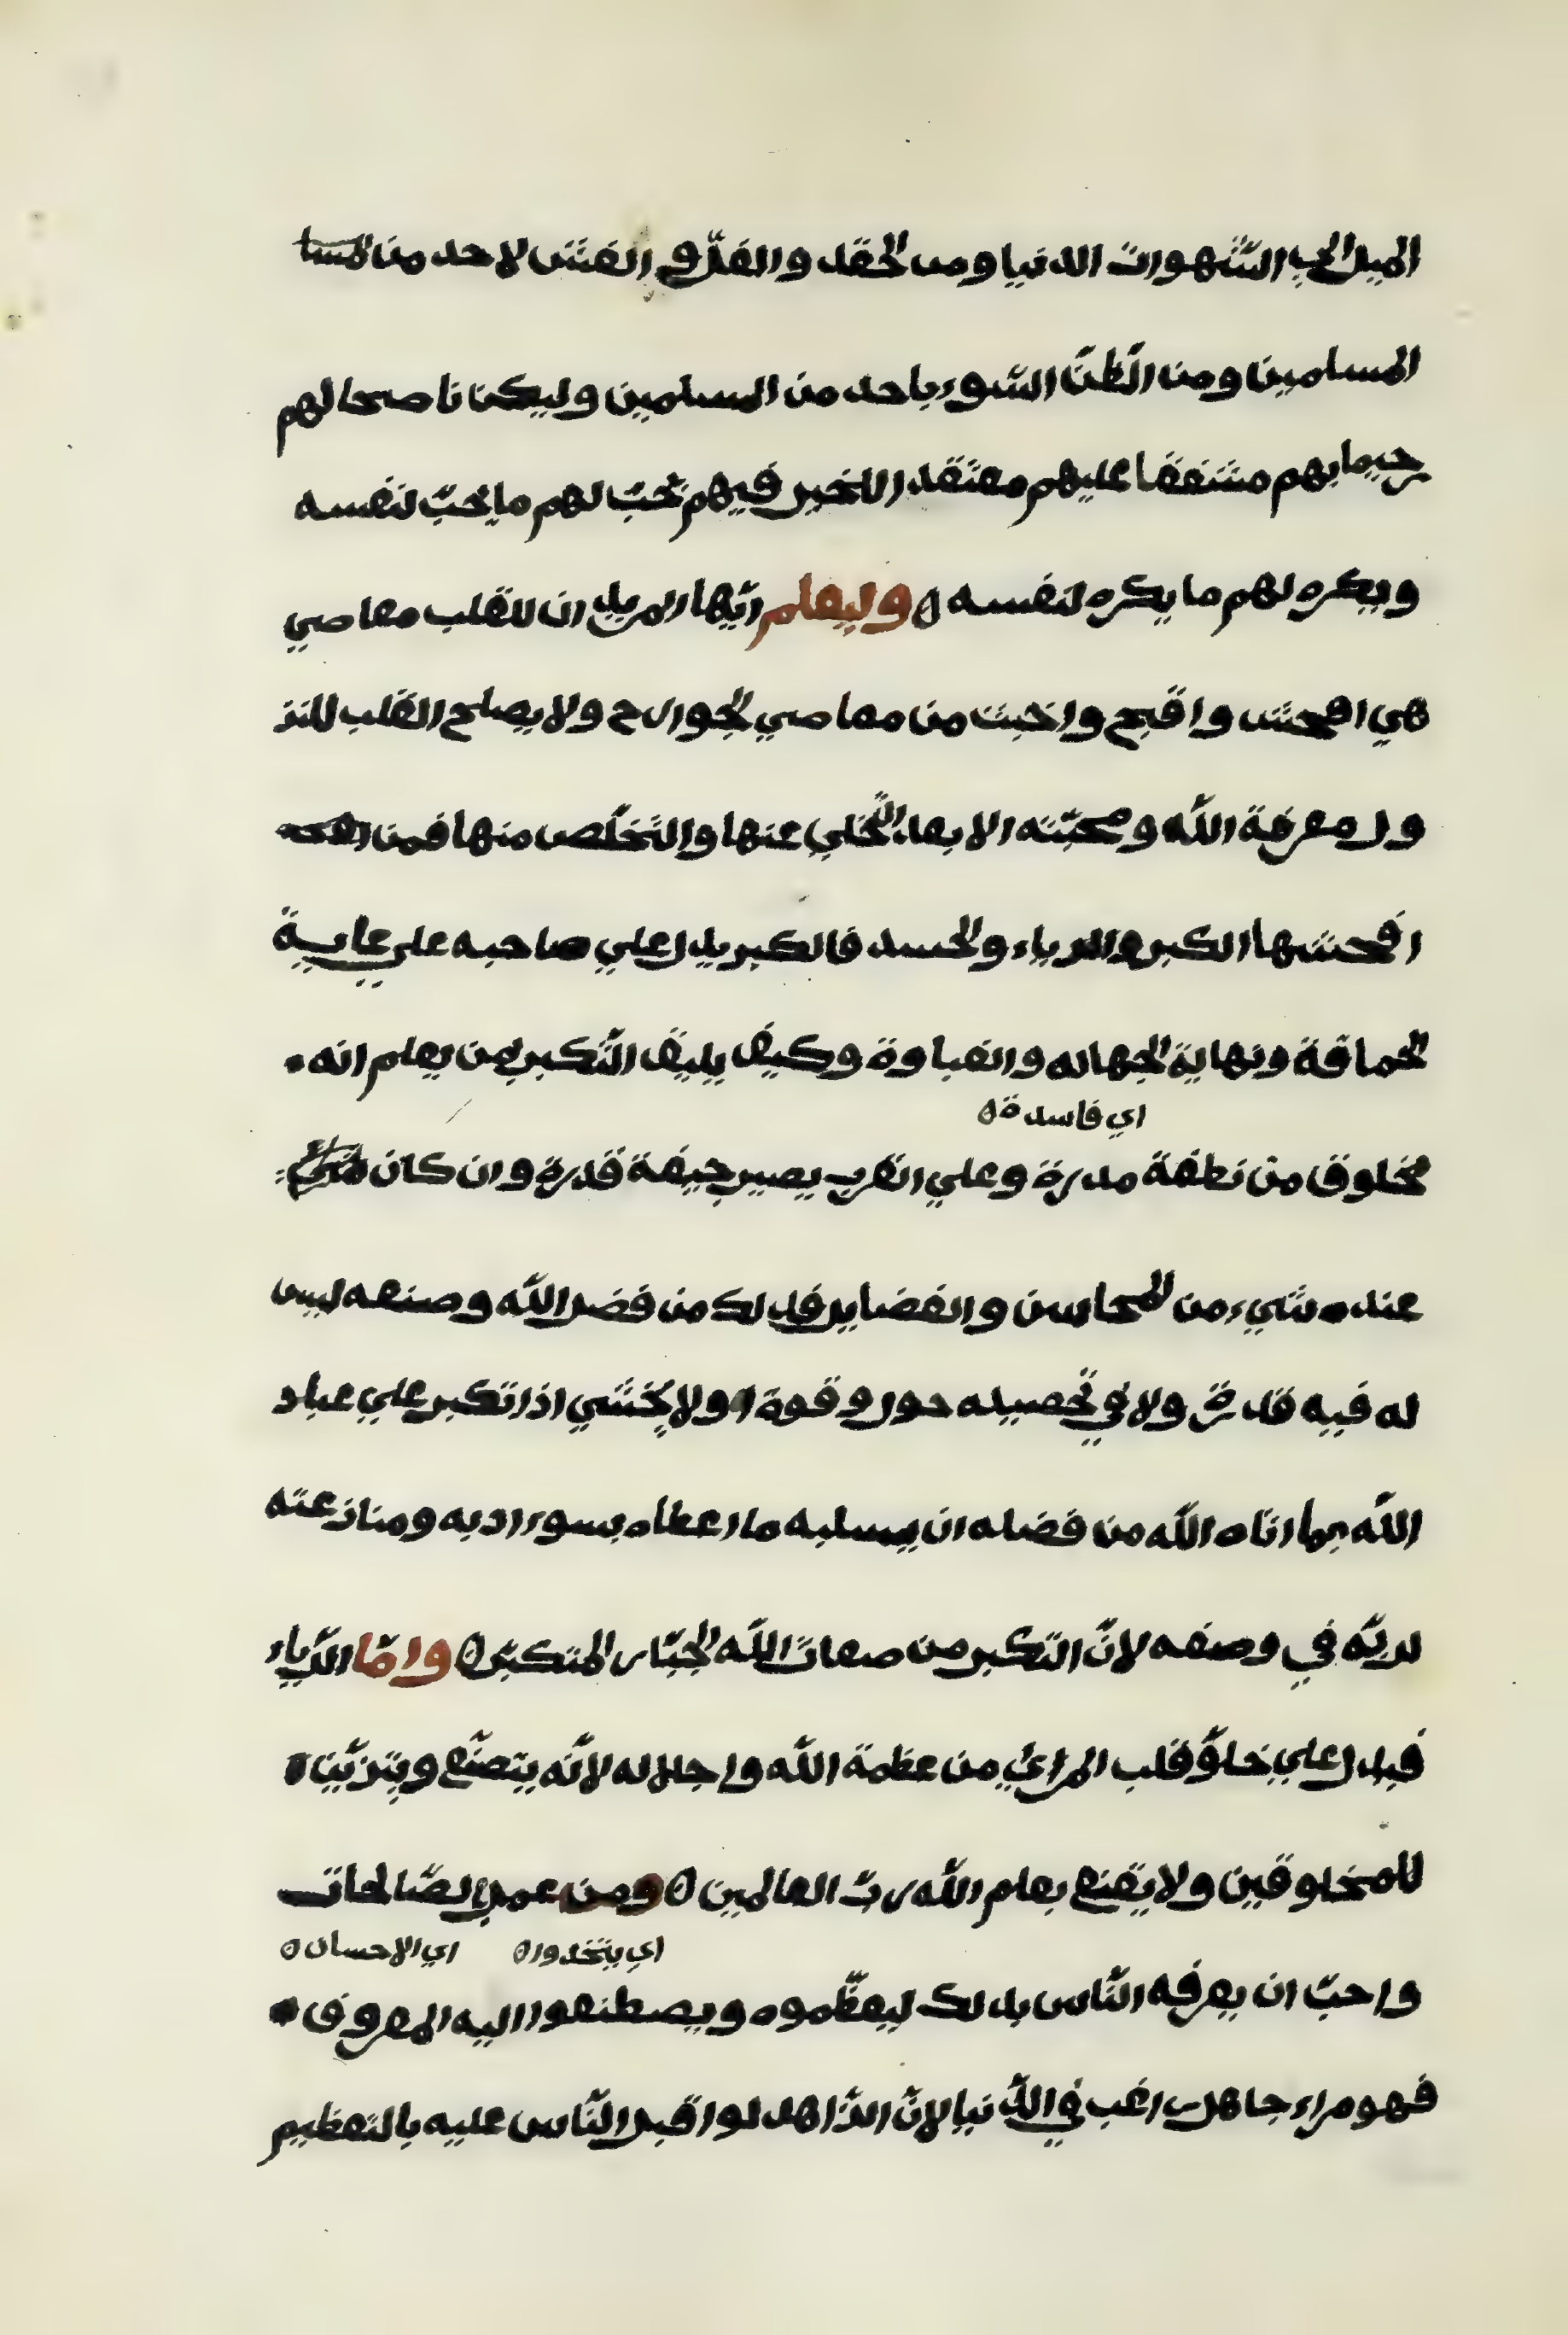 الميل الي الشهوات الدنيا ومن الحقد والغلّ و الغشّ لاحد من المسا
المسلمين ومن الظنّ السّوء باحد من المسلمين وليكن ناصحا لهم
رحيما بهم مشفقا عليهم معتقد اللخير فيهم تحبّ لهم ما يحبّ لنفسه
ويكره لهم ما يكره لنفسه ۵ وليعلم ايّها المريد ان للقلب معاصي
هي افحش واقبح واخبث من معاصي الجوارح ولا يصلح القلب للنز
ول معرفة اللّه ومحبّته الا بعد التّخلي عنها والتّخلّص منها فمن
افحشها الكبر والرياء والحسد فالكبر يدل علي صاحبه علي غاية
الحماقة ونهاية الجهاله والغباوة وكيف يليق التّكبر ممن يعلم انه
اي فاسدة ۵
مخلوق من نطفة مدرة وعلي القرب يصير جيفة قدرة وان كان
عنده شيء من المحاسن والفضايل فدلك من فضل اللّه وصنعه ليس
له فيه قدرة ولا في تحصيله حول وقوة اولا يخشي اذا تكبر علي عباد
اللّه بما اتاه اللّه من فضله ان يسلبه ما اعطاه بسوء ادبه ومنازعته
لربّه في وصفه لانّ التّكبر من صفات اللّه الجبّار المتكبّر ۵ وامّا الرّياء
فيدل علي خلوّ قلب المرائي من عظمة اللّه واجلاله لانّه يتصنّع ويتزيّن
للمخلوقين ولا يقنع بعلم اللّه ربّ العالمين ۵ ومن عمل الصّالحات
اي يتخدوا ۵ اي الاحسان ۵
واحبّ ان يعرفه النّاس بدلك ليعظّموه ويصطنعوا اليه المعروف
فهو مراء جاهل راغب في الدّنيا لانّ الزّاهد لو اقبل النّاس عليه بالتعظيم